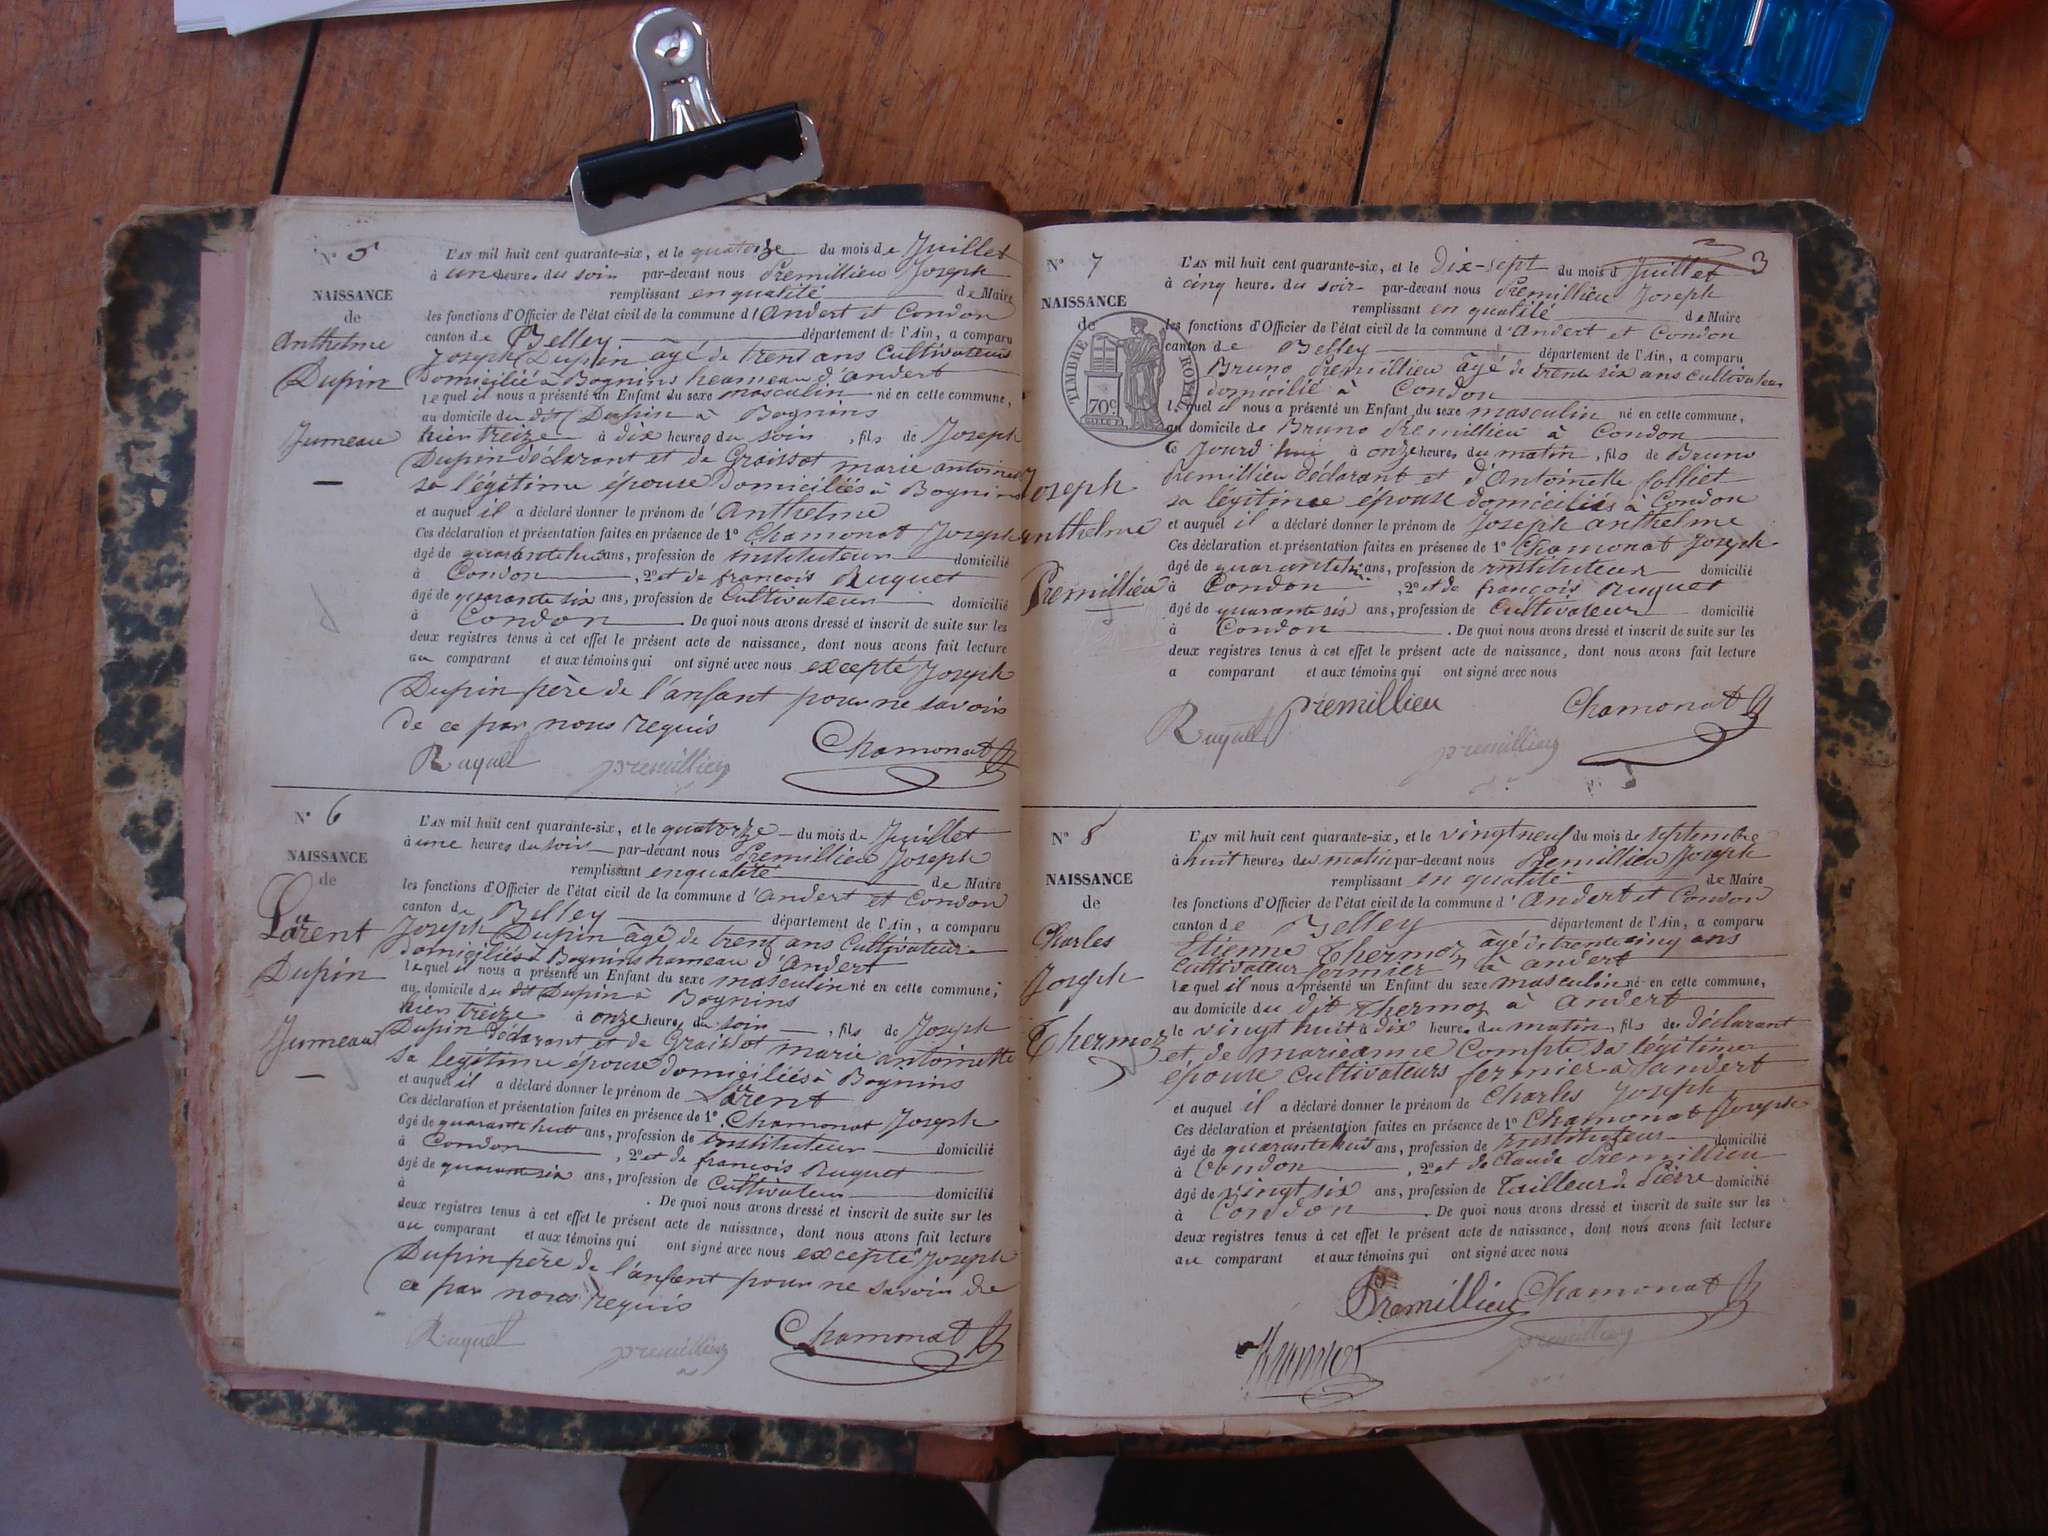 N° 5
NAISSANCE
de
Anthelme
Dupin
Jumeau
L'AN mil huit cent quarante-six, et le quatorze du mois de Juillet
à une heures du soir par-devant nous Premillieu Joseph
remplissant en qualité de Maire
les fonctions d'Officier de l'état civil de la commune d'Andert et Condon
canton de Belley département de l'Ain, a comparu
Joseph Dupin âgé de trent ans Cultivateur
domicilié à Bognins heameau d'andert
lequel il nous a présenté un Enfant du sexe masculin né en cette commune,
au domicile du dit Dupin à Bognins
hier treize à dix heures du soir, fils de Joseph
Dupin déclarant et de Graissot marie antoinette
sa légitime épouse domiciliés à Bognins
et auquel il a déclaré donner le prénom de Anthelme
Ces déclaration et présentation faites en présence de 1° Chamonat Joseph
âgé de quarante huit ans, profession de instituteur domicilié
à Condon, 2° et de françois Ruquet
âgé de quarante six ans, profession de Cultivateur domicilié
à Condon. De quoi nous avons dressé et inscrit de suite sur les
deux registres tenus à cet effet le présent acte de naissance, dont nous avons fait lecture
au comparant et aux témoins qui ont signé avec nous excepté Joseph
Dupin père de l'anfant pour ne savoir
de ce par nous requis
Ruquet premillieu Chamonat
N° 6
NAISSANCE
de
Laurent
Dupin
Jumeau
L'AN mil huit cent quarante-six, et le quatorze du mois de Juillet
à une heures du soir par-devant nous Premillieu Joseph
remplissant en qualité de Maire
les fonctions d'Officier de l'état civil de la commune d'andert et Condon
canton de Belley département de l'Ain, a comparu
Joseph Dupin âgé de trent ans Cultivateur
domiciliés à Bognins hameau d'andert
lequel il nous a présenté un Enfant du sexe masculin né en cette commune;
au domicile du dit Dupin à Bognins
hier treize à onze heures du soir, fils de Joseph
Dupin déclarant et de Graissot marie antoinette
sa legitime épouse domiciliés à Bognins
et auquel il a déclaré donner le prénom de Laurent
Ces déclaration et présentation faites en présence de 1° Chamonat Joseph
âgé de quarante huit ans, profession de instituteur domicilié
à Condon, 2° et de françois Ruquet
âgé de quarante six ans, profession de Cultivateur domicilié
à . De quoi nous avons dressé et inscrit de suite sur les
deux registres tenus à cet effet le présent acte de naissance, dont nous avons fait lecture
au comparant et aux témoins qui ont signé avec nous excepté Joseph
Dupin père de l'anfant pour ne savoir de
ce par nous requis
Ruquet premillieu Chamonat
3
N° 7
NAISSANCE
de
TIMBRE ROYAL
70c
Joseph
anthelme
Premillieu
L'AN mil huit cent quarante-six, et le Dix-sept du mois d Juillet
à cinq heures du soir par-devant nous Premillieu Joseph
remplissant en qualité de Maire
les fonctions d'Officier de l'état civil de la commune d'andert et Condon
canton de Belley département de l'Ain, a comparu
Bruno Premillieu âgé de trente six ans cultivateur
domicilié à Condon
lequel il nous a présenté un Enfant du sexe masculin né en cette commune,
au domicile de Bruno Premillieu à Condon
Ce jourd'hui à onze heures du matin, fils de Bruno
Premillieu déclarant et d'Antoinette folliet
sa légitime épouse domiciliés à Condon
et auquel il a déclaré donner le prénom de Joseph anthelme
Ces déclaration et présentation faites en présence de 1° Chamonat Joseph
âgé de quarante huit ans, profession de instituteur domicilié
à Condon, 2° et de françois Ruquet
âgé de quarante six ans, profession de Cultivateur domicilié
à Condon. De quoi nous avons dressé et inscrit de suite sur les
deux registres tenus à cet effet le présent acte de naissance, dont nous avons fait lecture
a comparant et aux témoins qui ont signé avec nous
Ruquet premillieu Chamonat
premillieu
N° 8
NAISSANCE
de
Charles
Joseph
Thermoz
L'AN mil huit cent quarante-six, et le vingt neuf du mois de septembre
à huit heures du matin par-devant nous Premillieu Joseph
remplissant en qualité de Maire
les fonctions d'Officier de l'état civil de la commune d'Andert et Condon
canton de Belley département de l'Ain, a comparu
Etienne Thermoz âgé de trente cinq ans
cultivateur fermier à andert
lequel il nous a présenté un Enfant du sexe masculin né en cette commune,
au domicile du dit Thermoz à andert
le vingt huit à dix heures du matin, fils du déclarant
et de marieanne Compte sa légitime
épouse cultivateurs fermier à andert
et auquel il a déclaré donner le prénom de Charles Joseph
Ces déclaration et présentation faites en présence de 1° Chamonat Joseph
âgé de quarante huit ans, profession de instituteur domicilié
à Condon, 2° et de Claude Premillieu
âgé de vingt six ans, profession de Tailleur de Pierre domicilié
à Condon. De quoi nous avons dressé et inscrit de suite sur les
deux registres tenus à cet effet le présent acte de naissance, dont nous avons fait lecture
au comparant et aux témoins qui ont signé avec nous
Premillieu Chamonat
premillieu